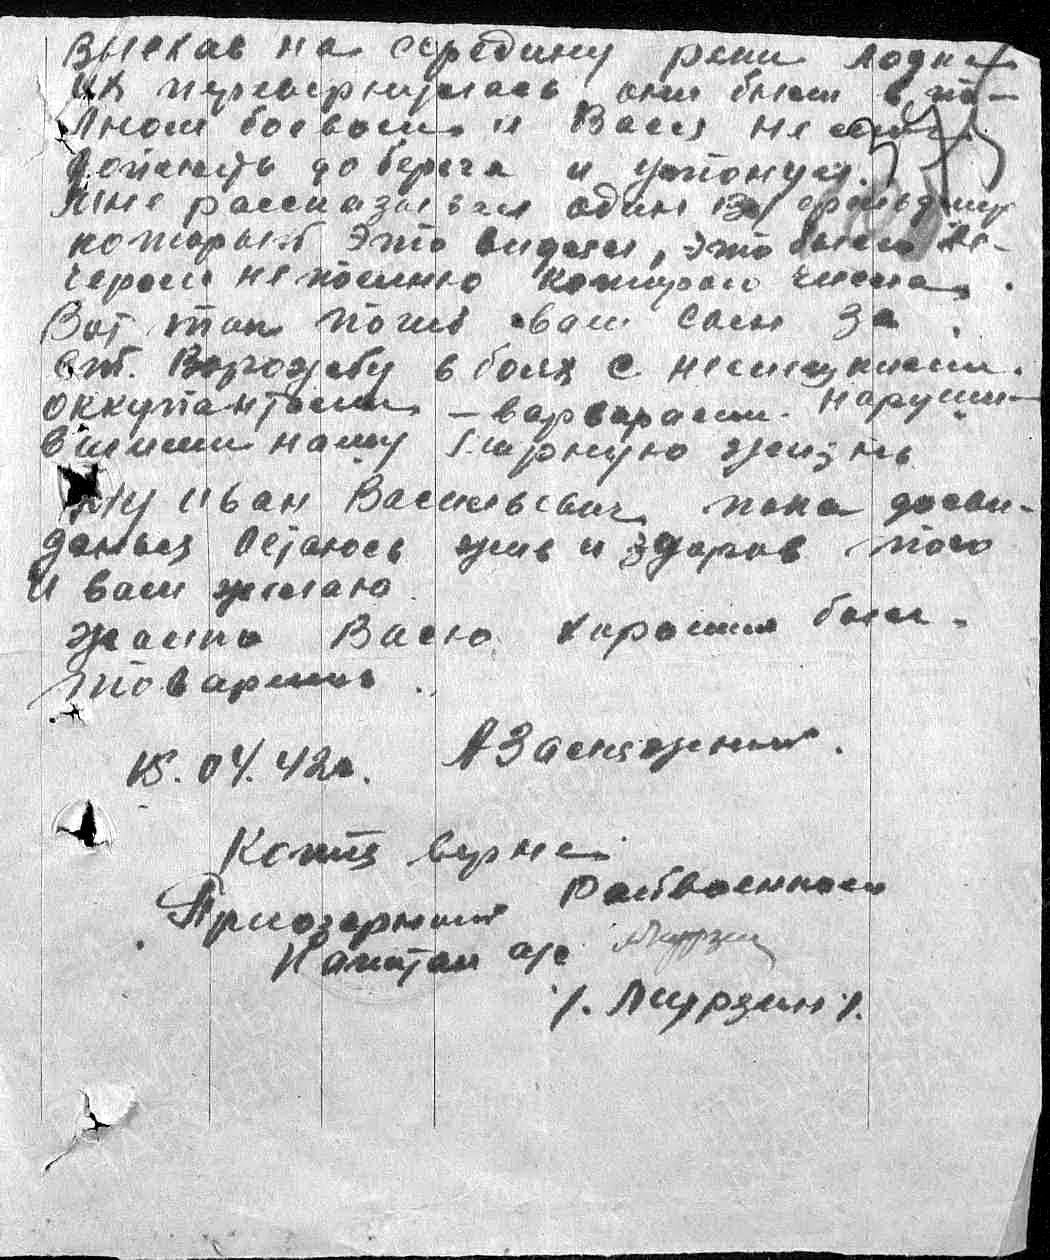 Выехав на середину реки лодка
их перевернулась они были в по-
лном боевом и Вася не смог
доплыть до берега и утонул.
Мне рассказывал один из
который это видел, это было ве-
чером не помню которого числа.
Вот так погиб ваш сын за
ст. Ворожбу в боях с немецкими
оккупантами – варварами. Наруши-
вшими нашу мирную жизнь
Ну Иван Васильевич пока досви-
данья Остаюсь жив и здоров того
и вам желаю
жалко Васю хароший был
товарищь.
15.04.42г. А Заснежний.
Копия верна
Приозерный Райвоенком
Капитан а/с
/. Мурзин /.